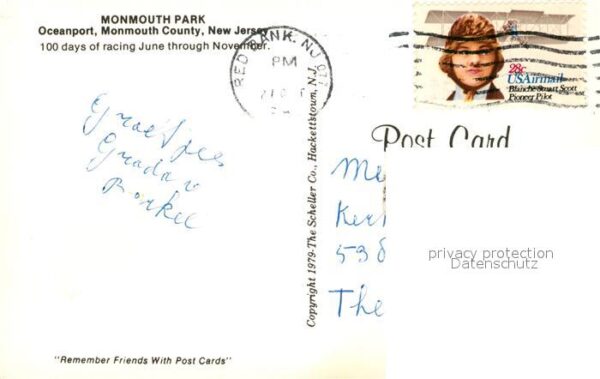 MONMOUTH PARK
Oceanport, Monmouth County, New Jersey
100 days of racing June through November.
RED BANK, NJ 077
PM
28c
USAirmail
Blanche Stuart Scott
Pioneer Pilot
Post Card
Groetjes
Copyright 1979-The Scheller Co., Hackettstown, N.J.
Me
Ker
538
The
privacy protection
Datenschutz
"Remember Friends With Post Cards"